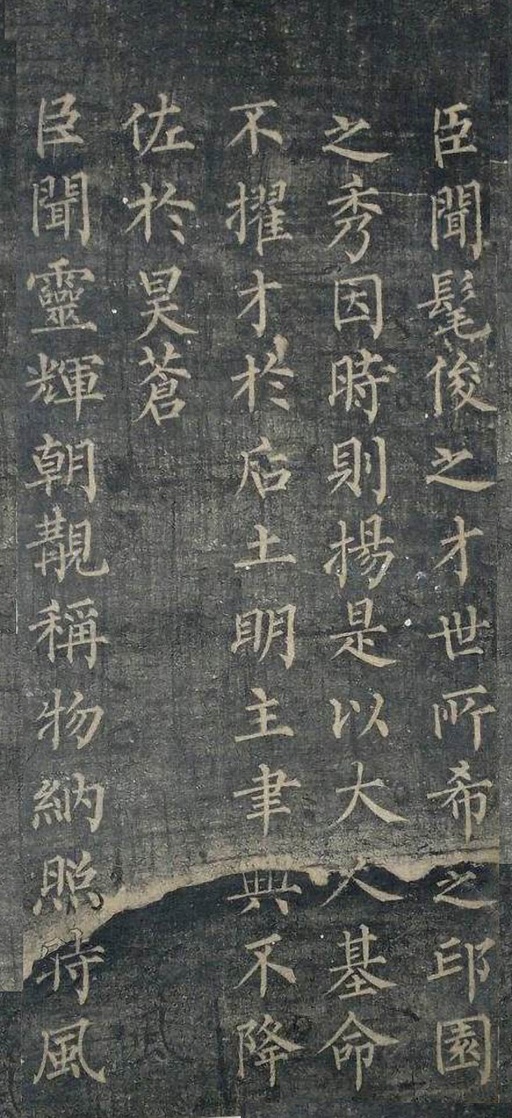 臣聞髦俊之才世所希乏邱園
之秀因時則揚是以大人基命
不擢才於后土明主聿興不降
佐於昊蒼
臣聞靈輝朝覯稱物納照時風